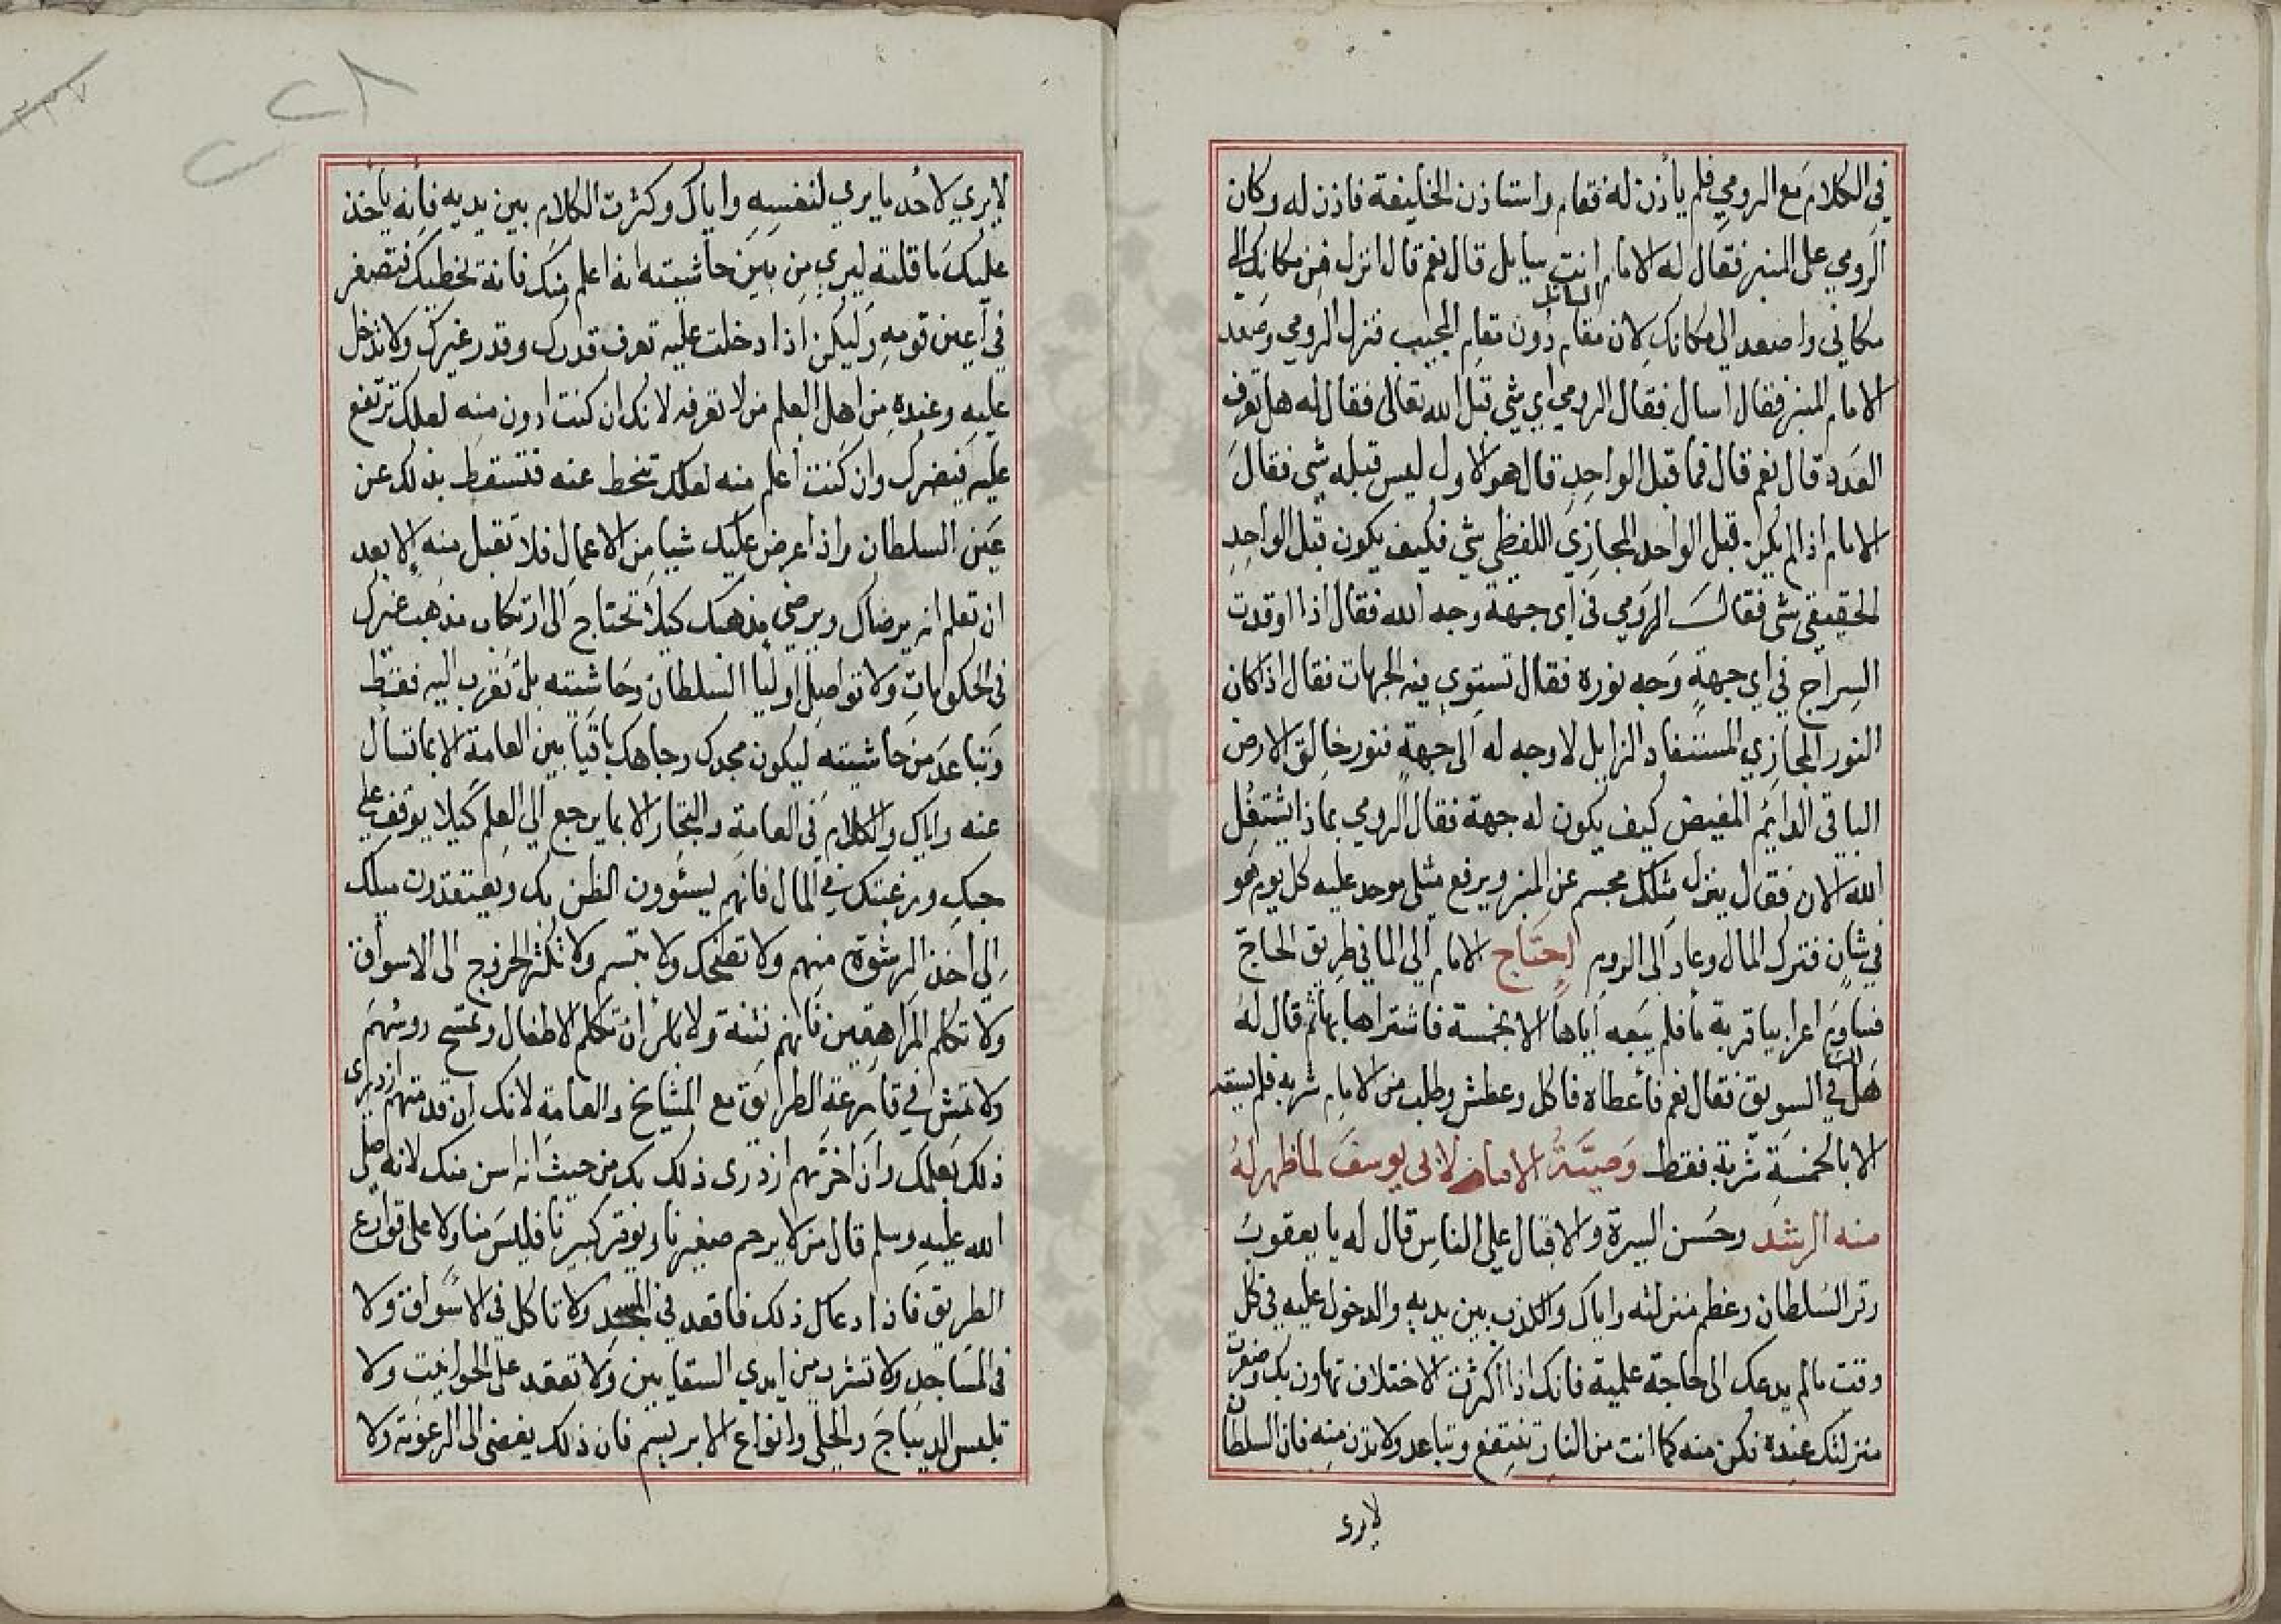 في الكلام مع الرومي فلم يأذن له فقام واستاذن الخليفة فاذن له وكان
الرومي على المنبر فقال له الامام انت سايل قال نعم قال انزل فمن مكانك الى
السائل
مكاني واصعد الى مكانك لان مقام دون مقام المجيب فنزل الرومي وصعد
الامام المنبر فقال اسال فقال الرومي اي شي قبل الله تعالى فقال له هل تعرف
العدد قال نعم قال فما قبل الواحد قال هو الاول ليس قبله شي فقال
الامام اذا لم يكن قبل الواحد المجازي اللفظي شي فكيف يكون قبل الواحد
الحقيقي شي فقال الرومي في اي جهة وجه الله فقال اذا اوقدت
السراج في اي جهة وجه نوره فقال تستوي فيه الجهات فقال اذا كان
النور المجازي المستفاد الزايل لا وجه له الى جهة فنور خالق الارض
الباقي الدايم المفيض كيف يكون له جهة فقال الرومي بماذا يشتغل
الله الان فقال ينزل مثلك مجسم عن المنبر ويرفع مثلي موحد عليه كل يوم هو
في شان فترك المال وعاد الى الروم احتاج الامام الى الما في طريق الحاج
فساوم اعرابيا قربة ما فلم يبعه اياها الا بخمسة فاشتراها بها ثم قال له
هل في السويق فقال نعم فأعطاه فاكل وعطش وطلب من الامام شربه فلم يسقه
الا بالخمسة شربة فقط وصية الامام لابي يوسف لما ظهر له
منه الرشد وحسن السيرة والاقبال على الناس قال له يا يعقوب
وقر السلطان وعظم منزلته واياك والكذب بين يديه والدخول عليه في كل
وقت مالم يدعك الى حاجة علمية فانك اذا اكثرت الاختلاف تهاون بك وصغرت
منزلتك عنده فكن منه كما انت من النار تنتفع وتباعد ولا تدن منه فان السلطان
لايرى
لا يري لاحد ما يري لنفسه واياك وكثرت الكلام بين يديه فانه يأخذ
عليك ما قلته ليري من بين حاشيته انه اعلم منك فانه يخطيك فتصغر
في اعين قومه وليكن اذا دخلت عليه تعرف قدرك وقدر غيرك ولا تدخل
عليه وعنده من اهل العلم من لا تعرفه لانك ان كنت ادون منه لعلك ترتفع
عليه فيضرك وان كنت اعلم منه لعلك تنحط عنه فتسقط بذلك عن
عين السلطان واذا عرض عليك شيا من الاعمال فلا تقبل منه الا بعد
ان تعلم انه يرضاك ويرضي مذهبك كيلا تحتاج الى ارتكاب مذهب غيرك
في الحكومات ولا تواصل اوليا السلطان وحاشيته بل تقرب اليه فقط
وتباعد من حاشيته ليكون مجدك وجاهك باقيا بين العامة الا بما تسأل
عنه واياك والكلام في العامة والتجار الا بما يرجع الى العلم كيلا يوقف على
حبك ورغبتك في المال فانهم يسئوون الظن بك ويعتقدون ميلك
الى اخذ الرشوة منهم ولا تضحك ولا تبتسم ولا تكثر الخروج الى الاسواق
ولا تكلم المراهقين فانهم فتنة ولا بأس ان تكلم الاطفال وتمسح روسهم
ولا تمش في قارعة الطرايق مع المشايخ والعامة لانك ان قدمتهم ازدرى
ذلك بعلمك وان اخرتهم ازدرى ذلك بك من حيث انه اسن منك لانه صلى
الله عليه وسلم قال من لا يرحم صغيرنا ويوقر كبيرنا فليس منا ولا على قوارع
الطريق فاذا دعاك ذلك فاقعد في المسجد ولا تاكل في الاسواق ولا
في المساجد ولا تشرب من ايدي السقايين ولا تقعد على الحوانيت ولا
تلبس الديباج والحلي وانواع الابريسم فان ذلك يفضي الى الرعونة ولا